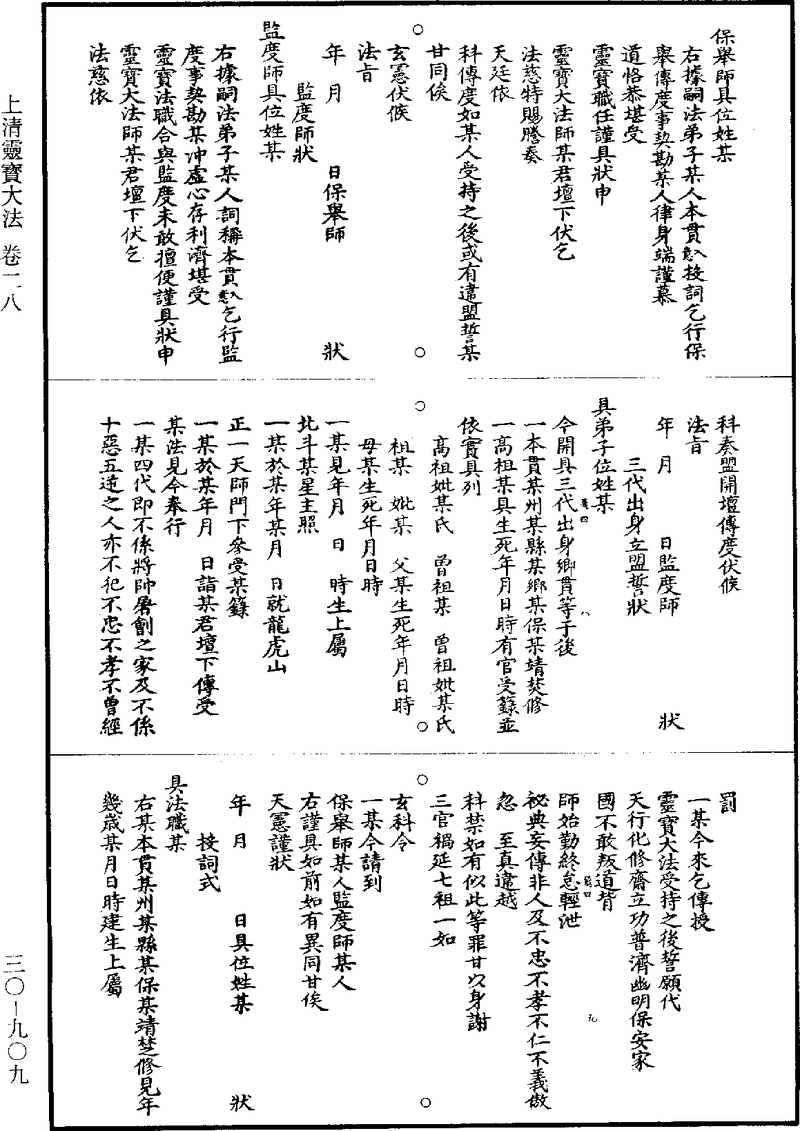 保舉師具位姓某
右據嗣法弟子某人本貫云云投詞乞行保
舉傳度事契勘某人律身端謹慕
道恪恭堪受
靈寶職任謹具狀申
靈寶大法師某君壇下伏乞
法慈特賜謄奏
天廷依
科傳度如某人受持之後或有違盟誓某
甘同俟
玄憲伏候
法旨
年 月 日保舉師 狀
監度師狀
監度師具位姓某
右據嗣法弟子某人詞稱本貫云云乞行監
度事契勘某冲虛心存利濟堪受
靈寶法職合與監度未敢擅便謹具狀申
靈寶大法師某君壇下伏乞
法慈依
科奏盟開壇傳度伏候
法旨
年 月 日監度師 狀
三代出身立盟誓狀
具弟子位姓某
今開具三代出身鄉貫等于後
一本貫某州某縣某鄉某保某靖焚修
一高祖某具生死年月日時有官受籙並
依實具列
高祖妣某氏 曾祖某 曾祖妣某氏
祖某 妣某 父某生死年月日時
母某生死年月日時
一某見年月 日 時生上屬
北斗某星主照
一某於某年某月 日就龍虎山
正一天師門下參受某籙
一某於某年月 日詣某君壇下傳受
某法見今奉行
一某四代即不係將帥屠劊之家及不係
十惡五逆之人亦不犯不忠不孝不曾經
罰
一某今來乞傳授
靈寶大法受持之後誓願代
天行化修齋立功普濟幽明保安家
國不敢叛道背
師始勤終怠輕泄
祕典妄傳非人及不忠不孝不仁不義傲
忽 至真違越
科禁如有似此等罪甘以身謝
三官禍延七祖一如
玄科令
一某今請到
保舉師某人監度師某人
右謹具如前如有異同甘俟
天憲謹狀
年 月 日具位姓某 狀
投詞式
具法職某
右某本貫某州某縣某保某靖焚修見年
幾歲某月日時建生上屬
上清靈寶大法 卷二八
三〇—九〇九